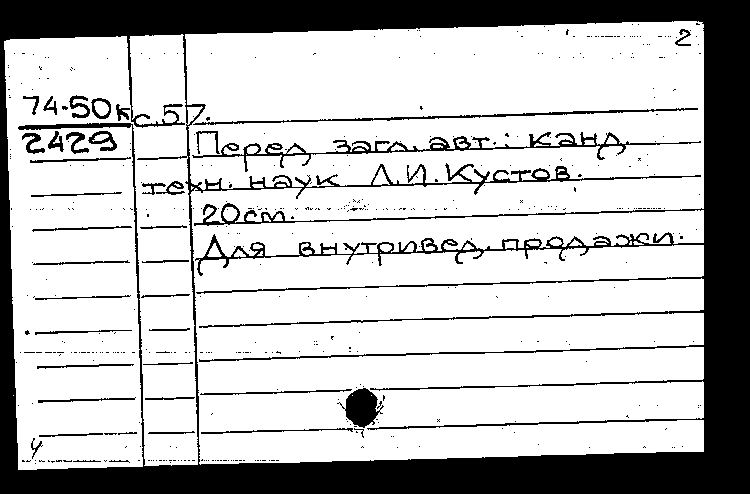 2
74-50к с.57.
2429
Перед загл. авт.: канд.
техн. наук Л.И.Кустов.
20см.
Для внутривед. продажи.
У